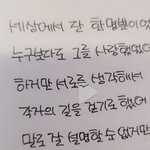 세상에서 단 한명뿐이었
누구보다도 그를 사랑했었
하지만 서로를 생각해서
각자의 길을 걷기로 했어
말로 잘 설명할 수 없지만